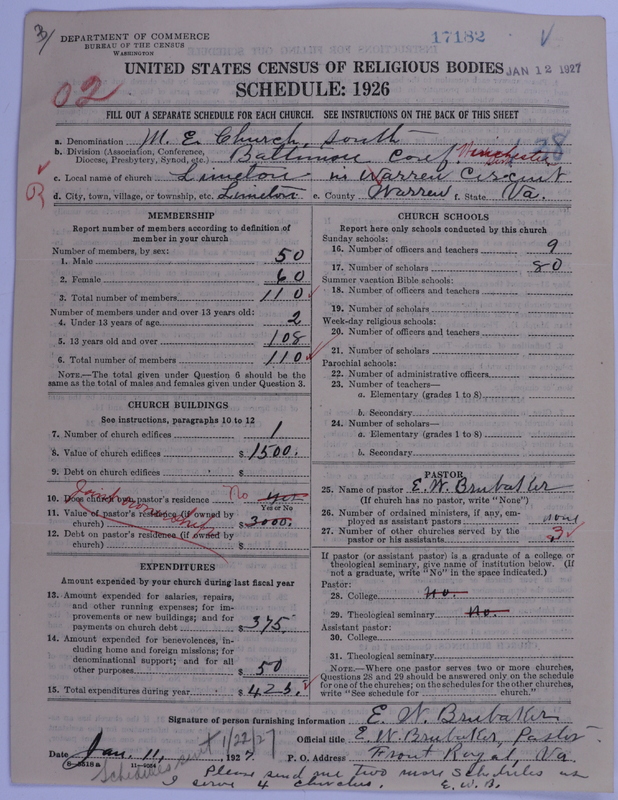 3/
DEPARTMENT OF COMMERCE
BUREAU OF THE CENSUS
WASHINGTON
17182
UNITED STATES CENSUS OF RELIGIOUS BODIES
JAN 12 1927
SCHEDULE: 1926
02
FILL OUT A SEPARATE SCHEDULE FOR EACH CHURCH. SEE INSTRUCTIONS ON THE BACK OF THIS SHEET
a. Denomination M. E. Church, South
b. Division (Association, Conference, Diocese, Presbytery, Synod, etc.) Baltimore Conf Winchester 28
c. Local name of church Limeton in Warren Circuit
R
d. City, town, village, or township, etc. Limeton e. County Warren f. State Va.
MEMBERSHIP
Report number of members according to definition of
member in your church
Number of members, by sex:
1. Male 50
2. Female 60
3. Total number of members 110
Number of members under and over 13 years old:
4. Under 13 years of age 2
5. 13 years old and over 108
6. Total number of members 110
NOTE.—The total given under Question 6 should be
same as the total of males and females given under Question 3.
CHURCH BUILDINGS
See instructions, paragraphs 10 to 12
7. Number of church edifices 1
8. Value of church edifices $ 1500.
9. Debt on church edifices $
10. Does church own pastor's residence No Yes
Yes or No
Joint ownership
11. Value of pastor's residence (if owned by
church) $ 3000.
12. Debt on pastor's residence (if owned by
church) $
EXPENDITURES
Amount expended by your church during last fiscal year
13. Amount expended for salaries, repairs,
and other running expenses; for im-
provements or new buildings; and for
payments on church debt $ 375.
14. Amount expended for benevolences, in-
cluding home and foreign missions; for
denominational support; and for all
other purposes $ 50
15. Total expenditures during year $ 425.
CHURCH SCHOOLS
Report here only schools conducted by this church
Sunday schools:
16. Number of officers and teachers 9
17. Number of scholars 80
Summer vacation Bible schools:
18. Number of officers and teachers
19. Number of scholars
Week-day religious schools:
20. Number of officers and teachers
21. Number of scholars
Parochial schools:
22. Number of administrative officers
23. Number of teachers—
a. Elementary (grades 1 to 8)
b. Secondary
24. Number of scholars—
a. Elementary (grades 1 to 8)
b. Secondary
PASTOR
25. Name of pastor E. W. Brubaker
(If church has no pastor, write "None")
26. Number of ordained ministers, if any, em-
ployed as assistant pastors none
27. Number of other churches served by the
pastor or his assistants 3
If pastor (or assistant pastor) is a graduate of a college or
theological seminary, give name of institution below. (If
not a graduate, write "No" in the space indicated.)
Pastor:
28. College No.
29. Theological seminary No.
Assistant pastor:
30. College
31. Theological seminary
NOTE.—Where one pastor serves two or more churches,
Questions 28 and 29 should be answered only on the schedule
for one of the churches; on the schedules for the other churches,
write "See schedule for ---- church."
Signature of person furnishing information E. W. Brubaker
Official title E. W. Brubaker, Pastor
Date Jan. 11, 1927. P. O. Address Front Royal, Va.
8-5518 a
Schedules sent 1/22/27
Please send me two more schedules as
I serve 4 churches. E. W. B.